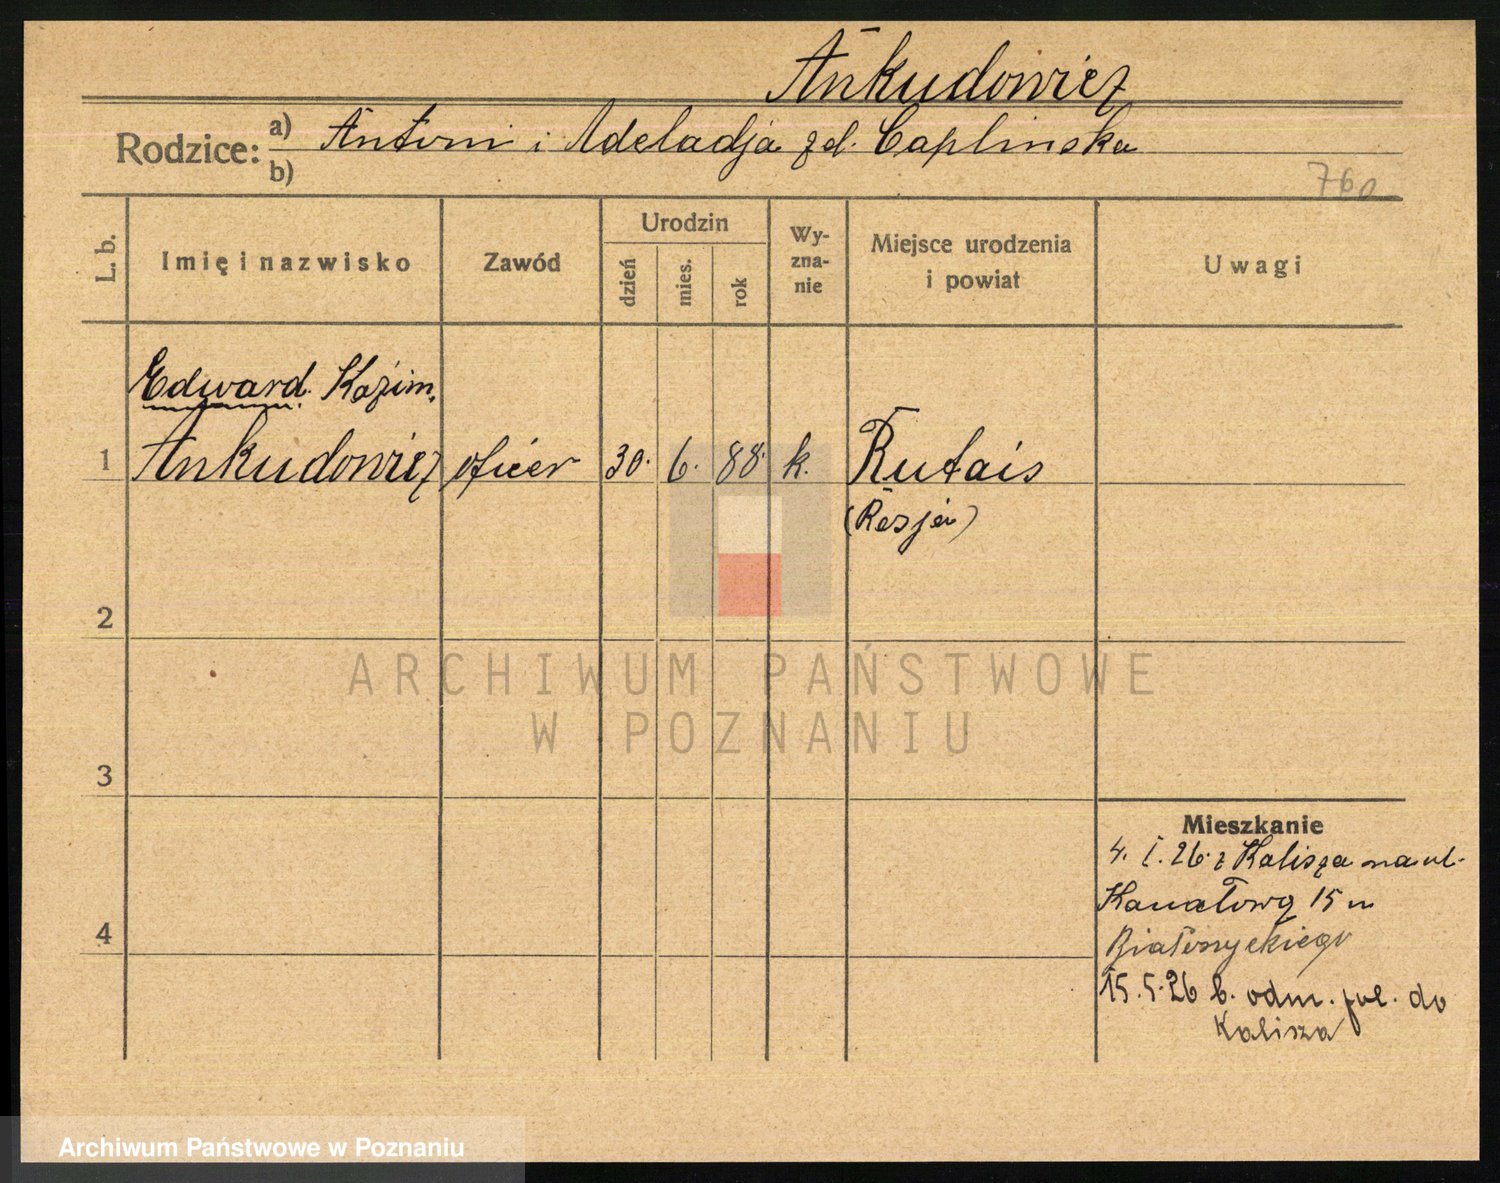 Ankudowicz
Rodzice: a) Antoni i Adeladja zd. Caplinska
b)
760
L. b.
Imię i nazwisko
Zawód
Urodzin
dzień
mies.
rok
Wy-
zna-
nie
Miejsce urodzenia
i powiat
Uwagi
Edward Kazim.
1 Ankudowicz oficer 30. 6. 88. k. Kutais
(Rosja)
2
ARCHIWUM PAŃSTWOWE
W POZNANIU
3
Mieszkanie
4. I. 26. z Kalisza na ul.
Kanałową 15 m
4
Białonyckiego
15.5.26 b. odm. pol. do
Kalisza
Archiwum Państwowe w Poznaniu